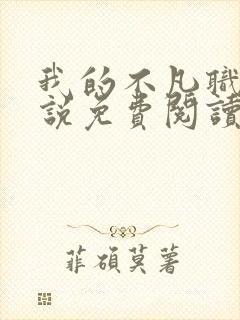 我的不凡職
說免費閱讀
菲碩莫著